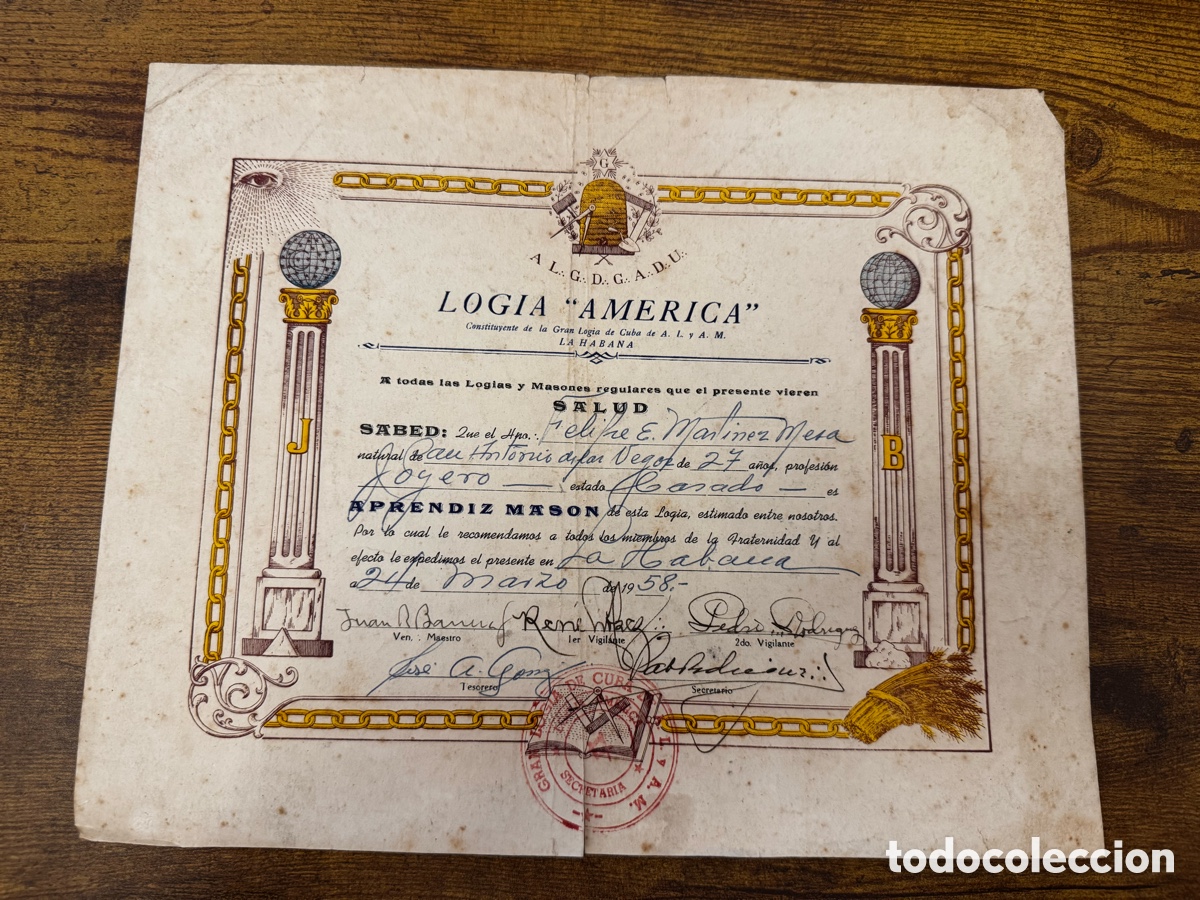 G
A L∴ G∴ D∴ G∴ A∴ D∴ U∴
LOGIA "AMERICA"
Constituyente de la Gran Logia de Cuba de A. L. y A. M.
LA HABANA
A todas las Logias y Masones regulares que el presente vieren
SALUD
SABED: Que el Hno∴ Felipe E. Martinez Mesa
natural de San Antonio de las Vegas de 27 años, profesión
Joyero — estado Casado — es
APRENDIZ MASON de esta Logia, estimado entre nosotros.
Por lo cual le recomendamos a todos los miembros de la Fraternidad Y al
efecto le expedimos el presente en La Habana
a 24 de Marzo de 1958.-
J
B
Juan R René Pedro Rodriguez
Ven∴ Maestro 1er Vigilante 2do. Vigilante
José A.
Tesorero Secretario
GRAN LOGIA DE CUBA DE A. L. y A. M.
SECRETARIA
todocoleccion